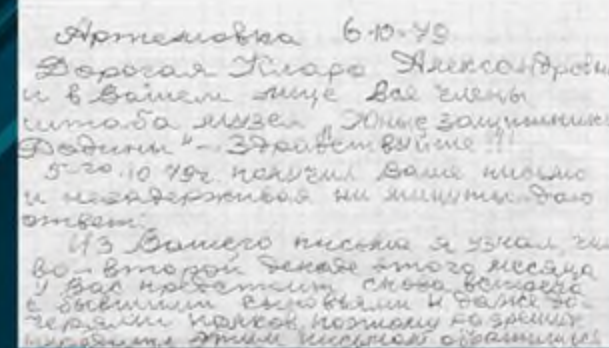 Артемовка 6-10-79
Дорогая Клара Александровн
и в Вашем лице все члены
штаба музея "Юные защитники
Родины" – Здравствуйте!!!
5-го.10 79г. получил Ваше письмо
и незадерживая ни минуты даю
ответ:
Из Вашего письма я узнал, чт
во-второй декаде этого месяца
у Вас предстоит снова встреча
с бывшими сыновьями и даже до-
черями полков, поэтому
этим письмом